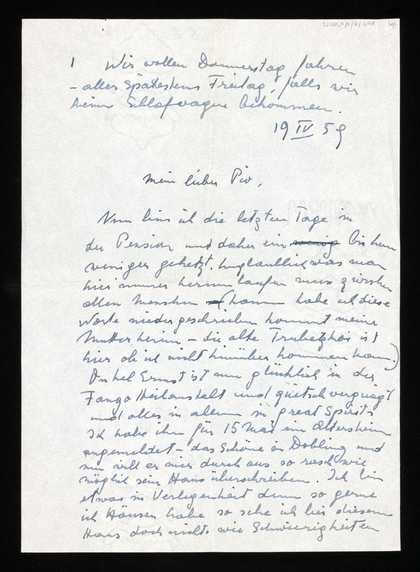 1 Wir wollen Donnerstag fahren
- allerspätestens Freitag, falls wir
keine Schlafwagen bekommen.
19 IV 59
Mein lieber Piv,
Nun bin ich die letzten Tage in
der Pension und daher ein wenig bischen
weniger gehetzt. Unglaublich was man
hier immer herum laufen muss zwischen
allen Menschen (kaum habe ich diese
Worte niedergeschrieben kommt meine
Mutter herein - die alte ist
hier ob ich nicht hinüber kommen kann)
Onkel Ernst ist nun glücklich in der
Fango Heilanstalt und quietschvergnügt
und alles in allem in great Spirits
Ich habe ihn für 15 Mai im Altersheim
angemeldet - das Schöne in Döbling und
nun will er mir durchaus so rasch wie
möglich sein Haus überschreiben. Ich bin
etwas in Verlegenheit denn so gerne
ich Häuser habe so sehe ich bei diesem
Haus doch nichts wie Schwierigkeiten